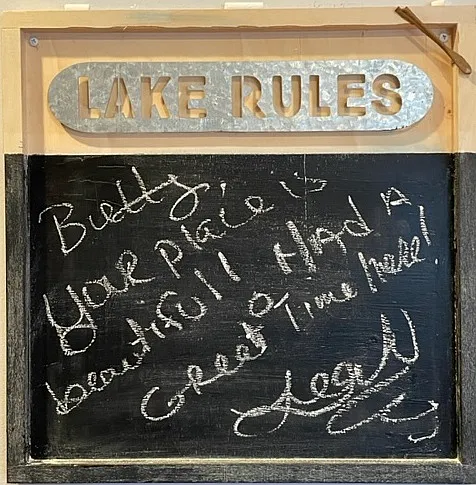 LAKE RULES
Your place is
beautifull Had a
Great Time here!